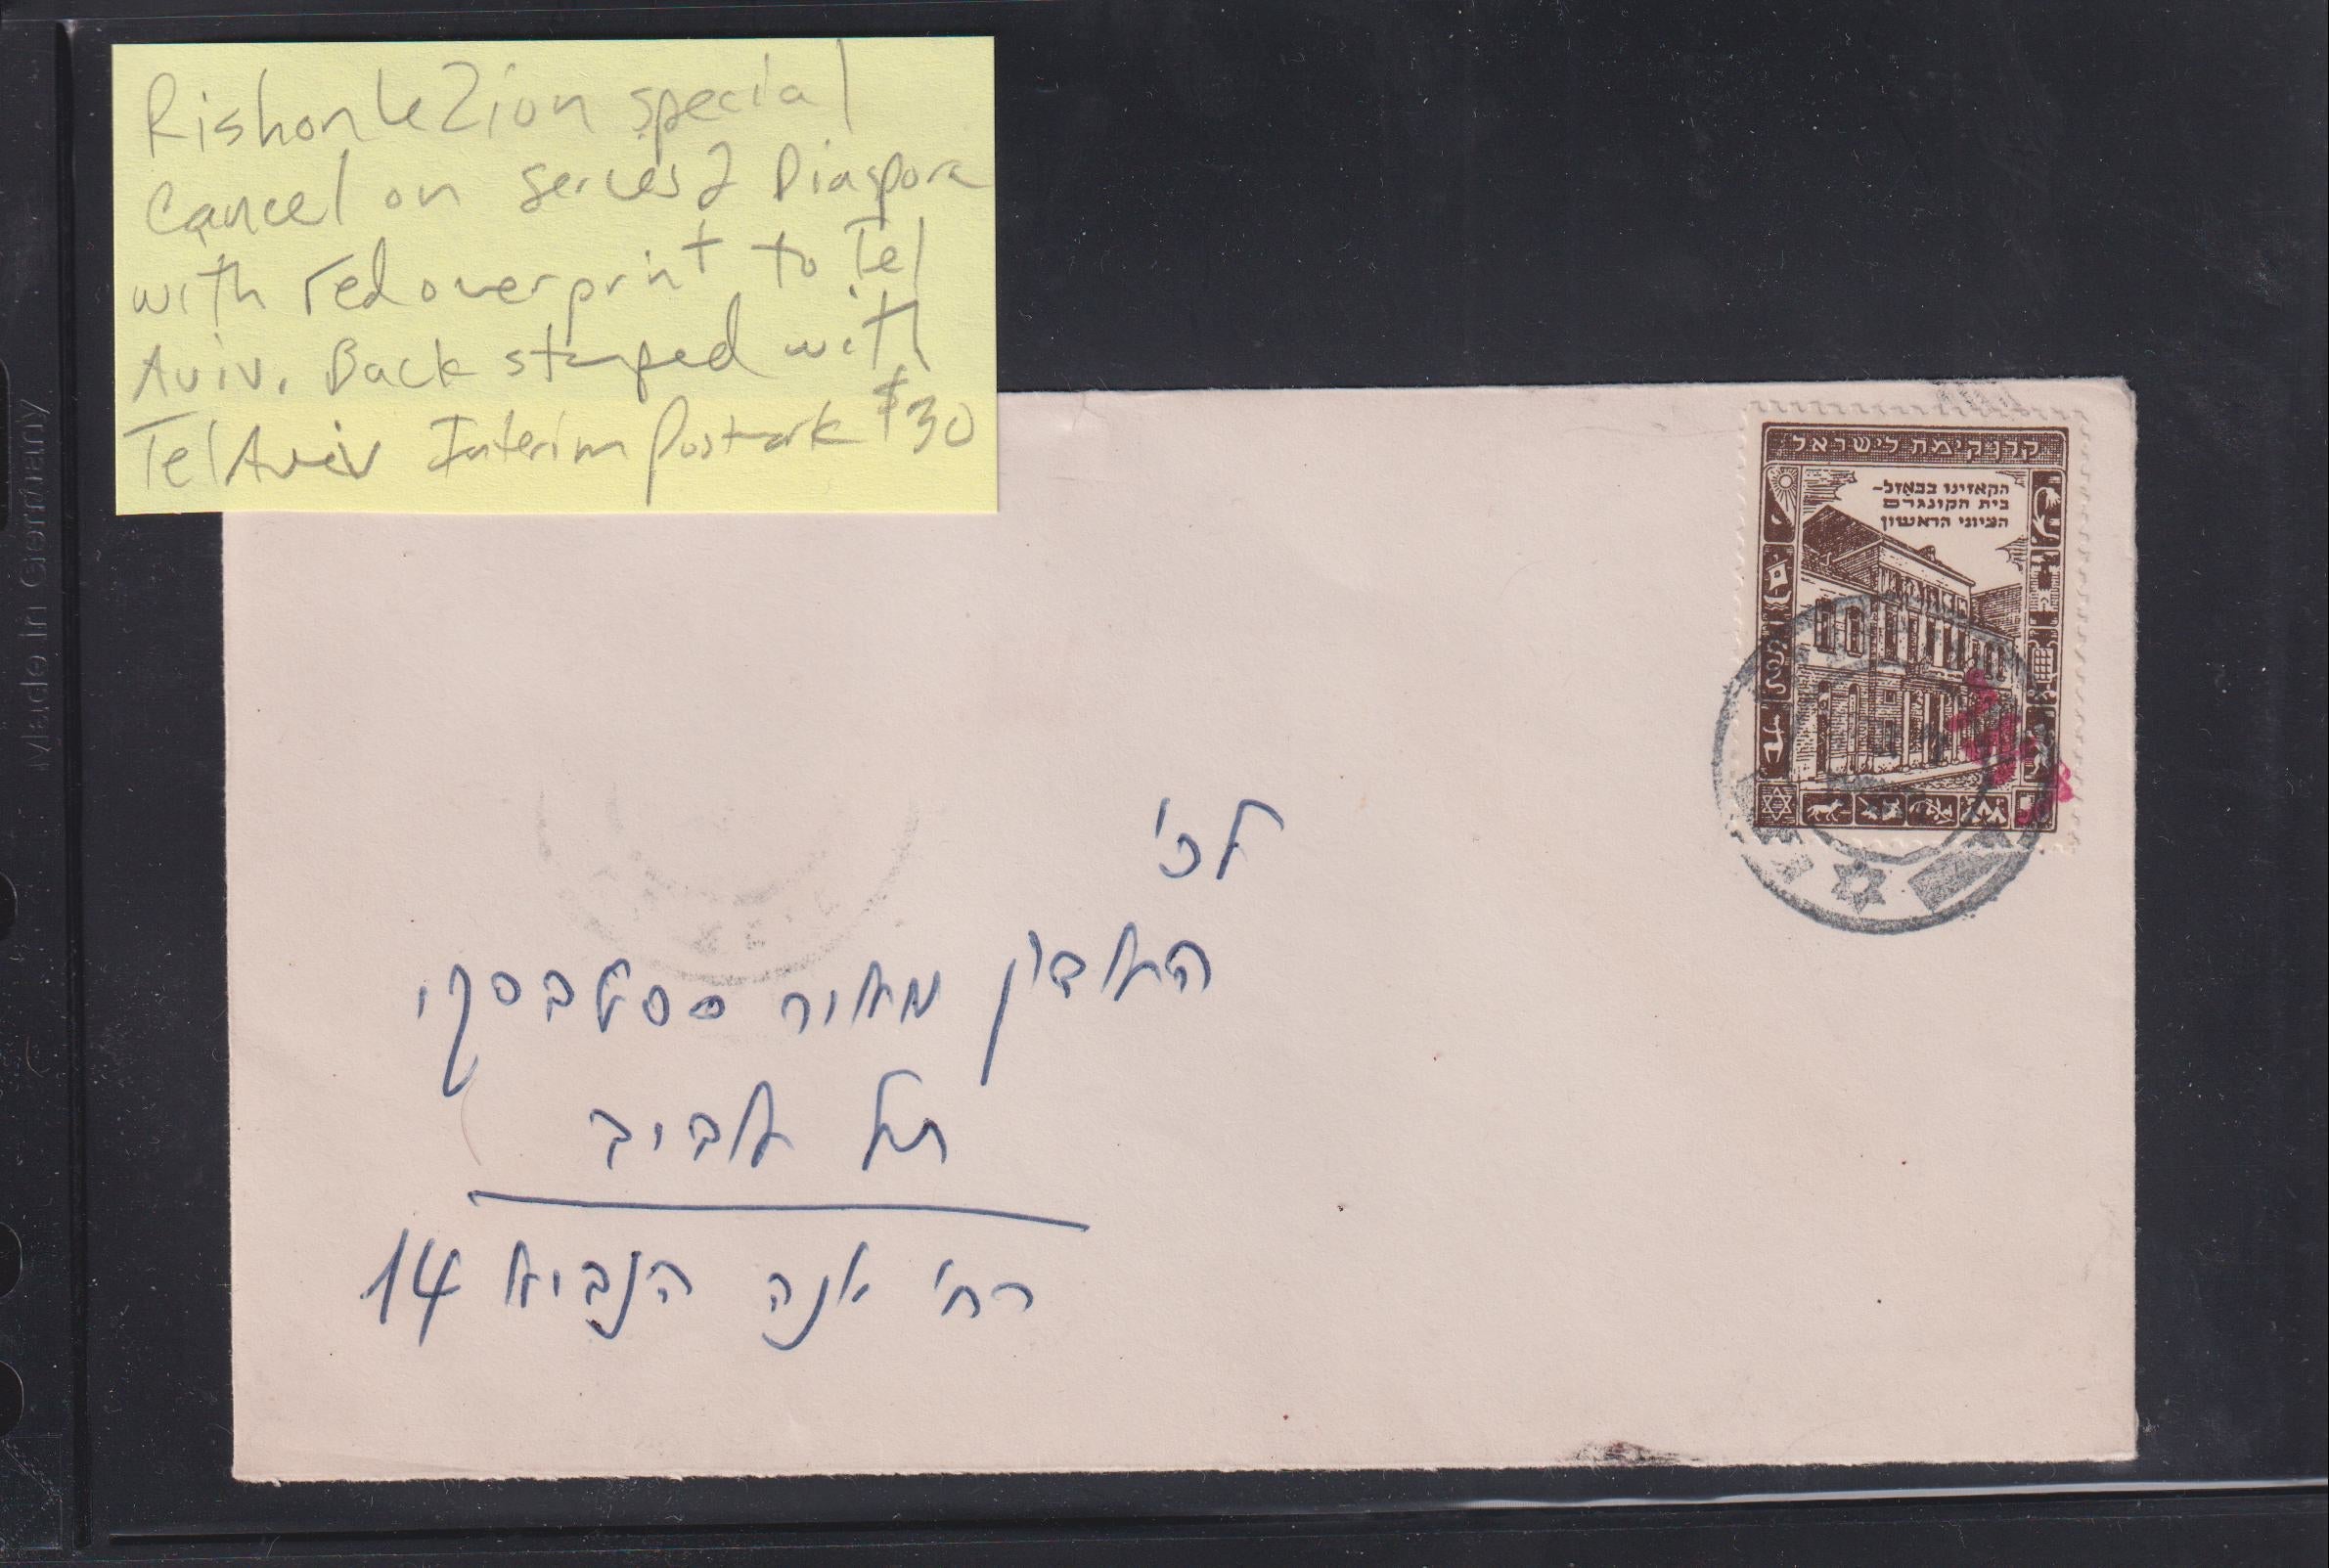 Rishon le Zion special
Cancel on series 2 Diaspora
with red overprint to Tel
Aviv. Back stamped with
Tel Aviv Interim Postmark $30
Made in Germany
קרן קימת לישראל
הקאזינו בבאזל-
בית הקונגרס
הציוני הראשון
לכ'
האדון מאיר
תל אביב
רח' הנביא 14